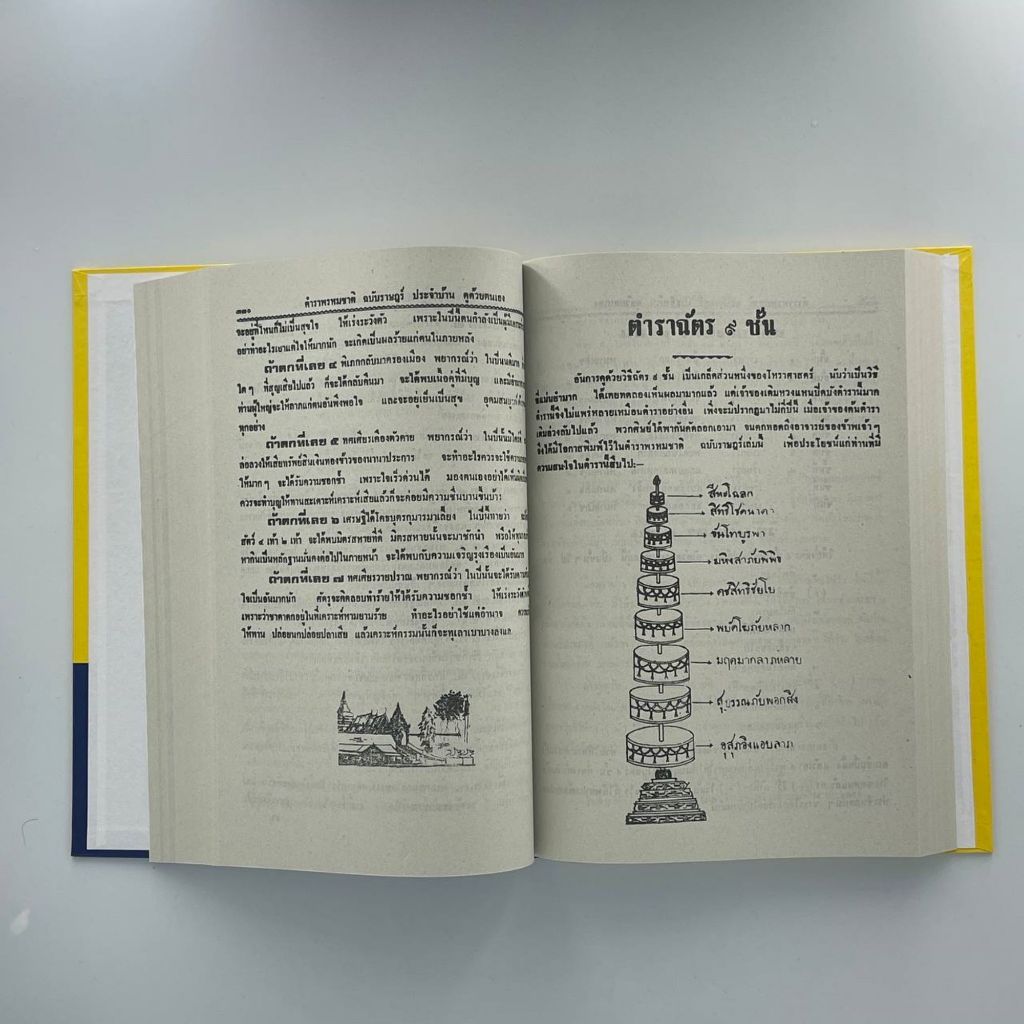 ๓๓๐ ตำราพรหมชาติ ฉบับราษฎร์ ประจำบ้าน ดูด้วยตนเอง
จะอยู่ที่ไหนก็ไม่เป็นสุขใจ ให้เร่งระวังตัว เพราะในปีนี้ตนกำลังเป็น
อย่าทำอะไรเอาแต่ใจให้มากนัก จะเกิดเป็นผลร้ายแก่ตนในภายหลัง
ถ้าตกที่เลย ๔ พิเภกกลับมาครองเมือง พยากรณ์ว่า ในปีนี้
ใดๆ ที่สูญเสียไปแล้ว ก็จะได้กลับคืนมา จะได้พบเนื้อคู่ที่มีบุญ
ท่านผู้ใหญ่จะให้ลาภแก่ตนอันพึงพอใจ และจะอยู่เย็นเป็นสุข อุดมสมบูรณ์
ทุกอย่าง
ถ้าตกที่เลย ๕ ทศเศียรเคืองตัวตาย พยากรณ์ว่า ในปีนี้
ล่อลวงให้เสียทรัพย์สินเงินทองข้าวของนานาประการ จะทำอะไรควรจะใช้ความ
ให้มากๆ จะได้รับความชอกช้ำ เพราะใจเร็วด่วนได้ มองคนเองอย่าได้
ควรจะทำบุญให้ทานสะเดาะห์เคราะห์เสียแล้วก็จะค่อยมีความชื่นบานขึ้นบ้าง
ถ้าตกที่เลย ๖ เศรษฐีได้โคบุตรกุมารมาเลี้ยง ในปีนี้ทายว่า
สัตว์ ๔ เท้า ๒ เท้า จะได้พบมิตรสหายที่ดี มิตรสหายนั้นจะมาชักนำ
หากินเป็นหลักฐานมั่นคงต่อไปในภายหน้า จะได้พบกับความเจริญรุ่งเรืองเป็น
ถ้าตกที่เลย ๗ ทศเศียรวายปราณ พยากรณ์ว่า ในปีนี้จะได้รับความ
ใจเป็นอันมากนัก ศัตรูจะคิดลอบทำร้ายให้ได้รับความชอกช้ำ ให้เร่งระวัง
เพราะว่าชาตาตกอยู่ในที่เคราะห์หามยามร้าย ทำอะไรอย่าใช้แต่อำนาจ
ให้ทาน ปล่อยนกปล่อยปลาเสีย แล้วเคราะห์กรรมนั้นก็จะทุเลาเบาบางลง
ตำราฉัตร ๙ ชั้น
อันการดูด้วยวิธีฉัตร ๙ ชั้น เป็นเกล็ดส่วนหนึ่งของโหราศาสตร์ นับว่าเป็นวิธี
ที่แม่นยำมาก ได้เคยทดลองเห็นผลมามากแล้ว แต่เจ้าของเดิมหวงแหนปิดบังตำรานี้มาก
ตำรานี้จึงไม่แพร่หลายเหมือนตำราอย่างอื่น เพิ่งจะมีปรากฏมาไม่กี่ปีนี้ เมื่อเจ้าของต้นตำรา
เดิมล่วงลับไปแล้ว พวกศิษย์ได้พากันคัดลอกเอามา จนตกทอดถึงอาจารย์ของข้าพเจ้าๆ
จึงได้มีโอกาสพิมพ์ไว้ในตำราพรหมชาติ ฉบับราษฎร์เล่มนี้ เพื่อประโยชน์แก่ท่านที่มี
ความสนใจในตำรานี้สืบไป:—
สีหะโฉลก
สิทธิโชคนาคา
ขันโทบูรพา
มหิงสาภัยพิพิธ
คชสิทธิชัยโย
พยัคโฆภัยหลาก
มฤคมาลาภหลาย
สุบรรณภัยพอกสิง
อุสุภอิงแอบลาภ